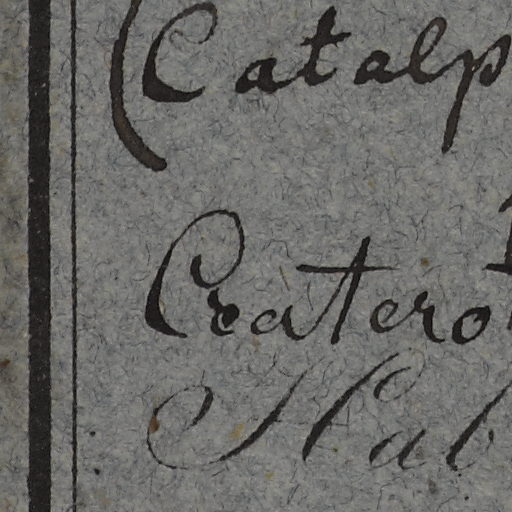 (Catalp
Cratero
Hab